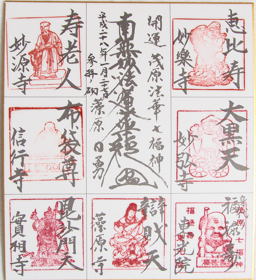 恵比寿
妙樂寺
南無妙法蓮華経
開運
茂原法華七福神
平成二八年一月二十三日
参拝
藻原
日勇
寿老人
妙源寺
大黒天
妙弘寺
布袋尊
信行寺
福禄寿
東光院
辯財天
藻原寺
毘沙門天
實相寺